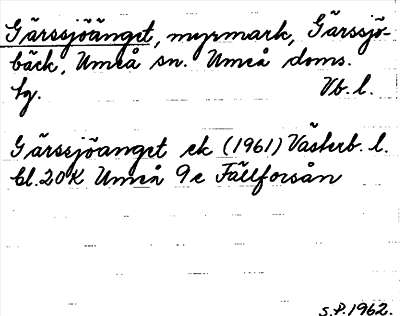 Gärssjöänget, myrmark, Gärssjö-
bäck, Umeå sn. Umeå doms.
lg. Vb. l.
Gärssjöanget ek (1961) Västerb. l.
bl. 20 K Umeå 9 c Fällforsån
S.P. 1962.